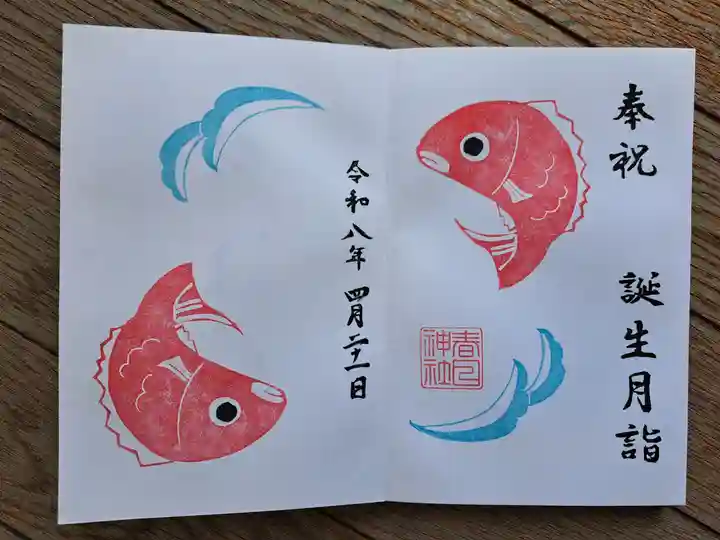 奉祝 誕生月詣
春日
神社
令和八年 四月二十一日